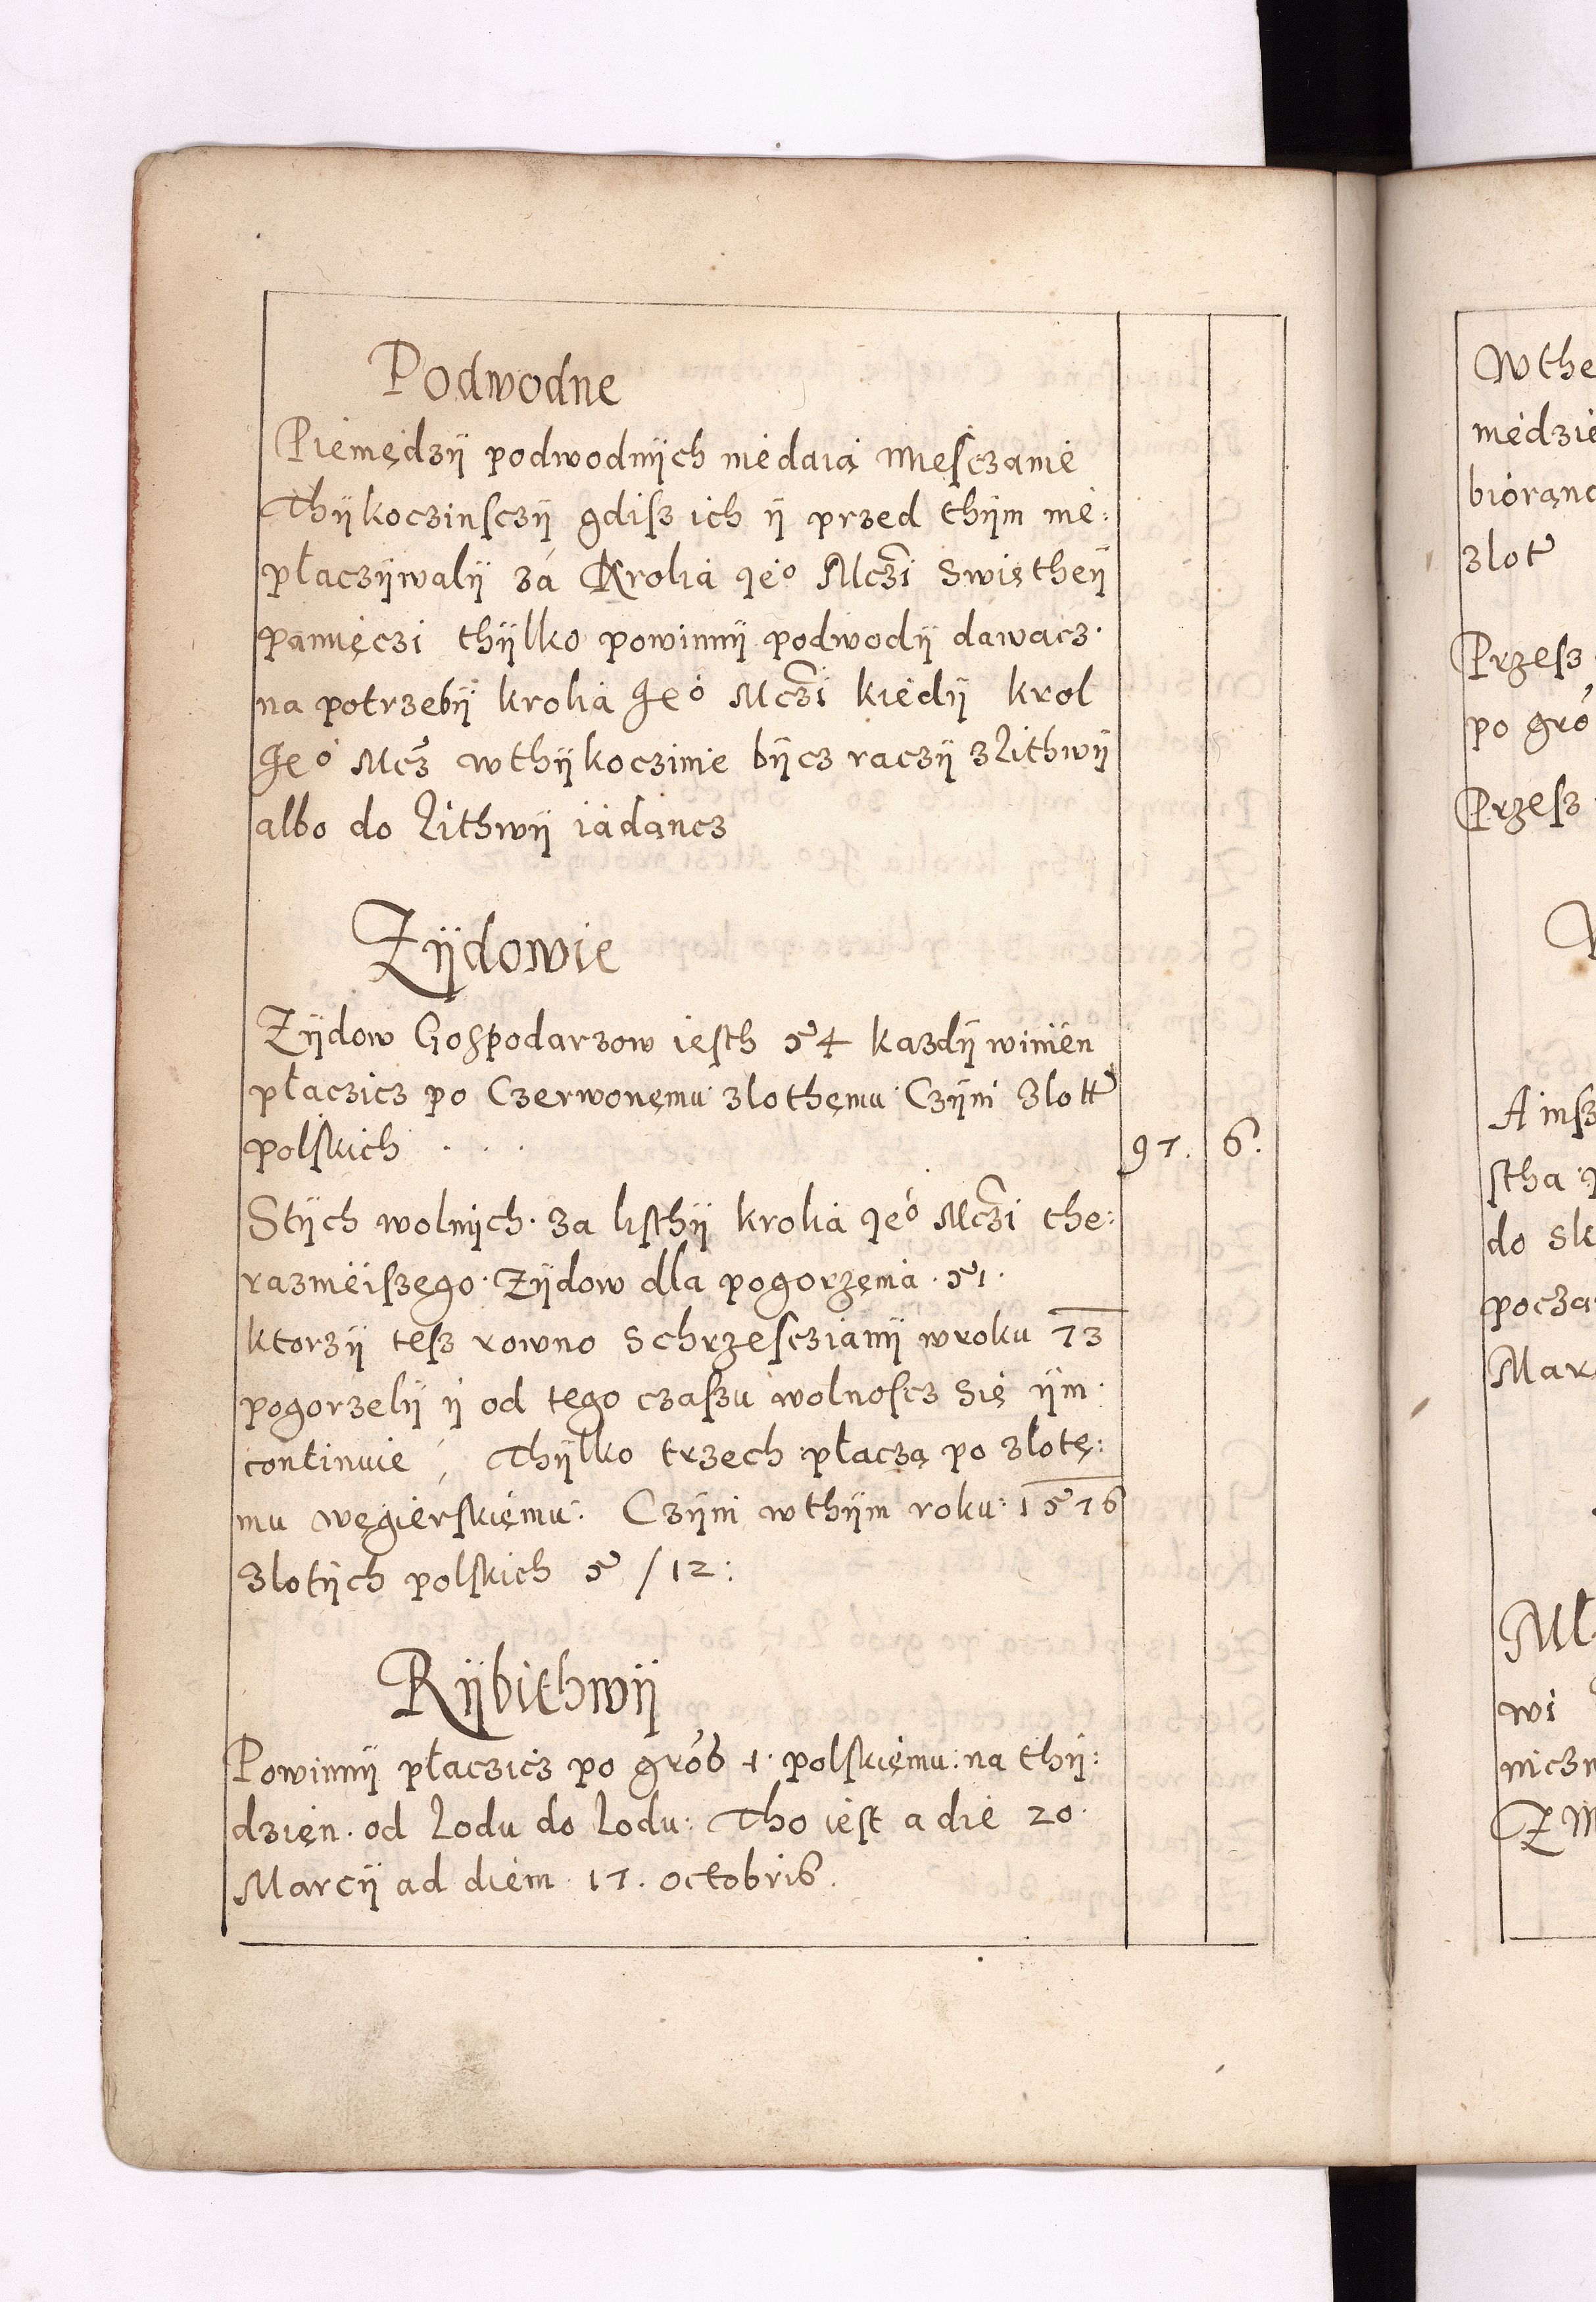 Podwodne
Pieniędzÿ podwodnÿch niedaią Miesczanie
Thÿkoczinsczÿ gdisz ich ÿ przed thÿm nie:
płaczÿwalÿ za Krolia Ieº Mczi Swiętheÿ
pamięczi thÿlko powinnÿ podwodÿ dawacz
na potrzebÿ krolia Ieº Mczi kiedÿ krol
Ieº Mcz w thÿkoczinie bÿcz raczÿ z Lithwÿ
albo do Lithwÿ iadancz
Zÿdowie
Zÿdow Gospodarzow iesth 54 kazdÿ winien
płaczicz po Czerwonęmu zlothęmu Czÿni Zlott
polskich . . . 97. 6.
Stÿch wolnÿch. za listhÿ krolia Ieº Mczi the:
raznieiszego. Zÿdow dla pogorzęnia. 51.
ktorzÿ tesz rowno Schrzesczianÿ w roku 73
pogorzelÿ ÿ od tego czaszu wolnoscz się ÿm
continuie, Thÿlko trzech płaczą po złotę:
mu węgierskięmu: Czÿni w thÿm roku: 1576
Zlotÿch polskich 5 / 12:
Rÿbithwÿ
Powinnÿ płaczicz po gros 1. polskięmu: na thÿ:
dzięn. od Lodu do Lodu: Tho iest a die 20
Marcÿ ad diem 17. octobris.
W the
niedzie
biorąnc
zlot
Przesz
po gro
Przesz
A insz
stha
do sk
pocza
Mar
Mł
wi
nicz